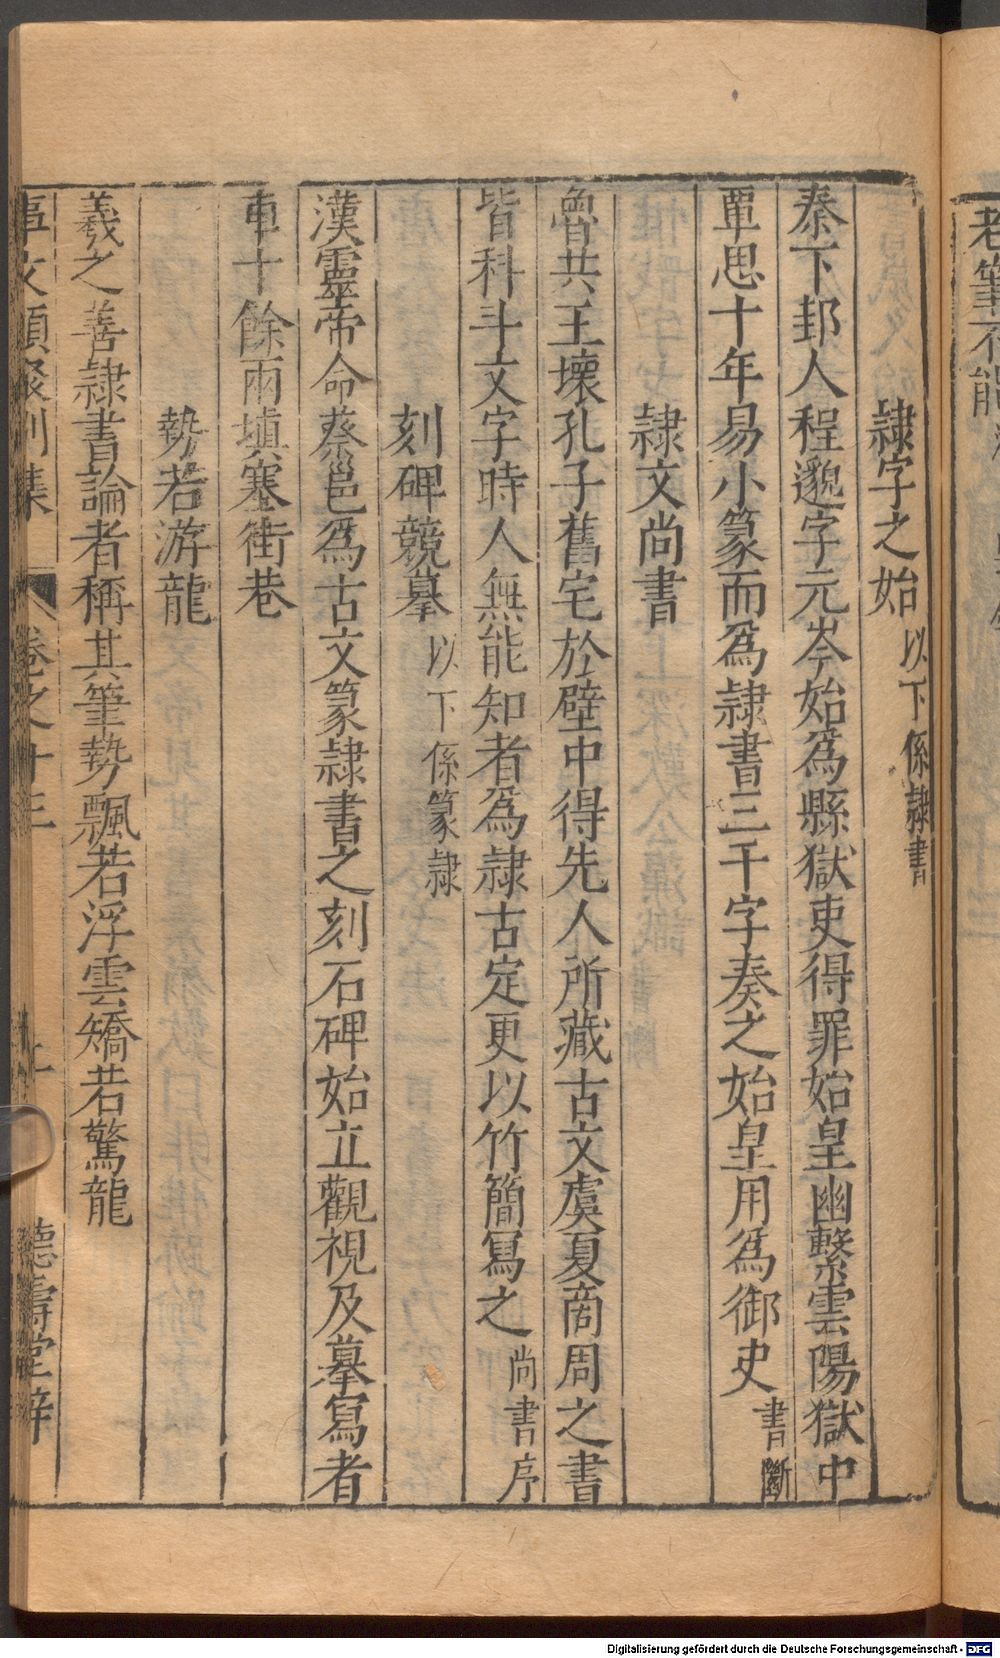 隷字之始 以下係隷書
秦下邽人程邈字元岑始爲縣獄吏得罪始皇幽繫雲陽獄中
覃思十年易小篆而爲隷書三千字奏之始皇用爲御史 書斷
隷文尚書
魯共王壞孔子舊宅於壁中得先人所藏古文虞夏商周之書
皆科斗文字時人無能知者爲隷古定更以竹簡冩之 尚書序
刻碑競摹 以下係篆隷
漢靈帝命蔡邕爲古文篆隷書之刻石碑始立觀視及摹寫者
車十餘兩填塞街巷
勢若游龍
羲之善隷書論者稱其筆勢飄若浮雲矯若驚龍
事文類聚別集 卷之十三 德壽堂梓
老筆不能
Digitalisierung gefördert durch die Deutsche Forschungsgemeinschaft - DFG